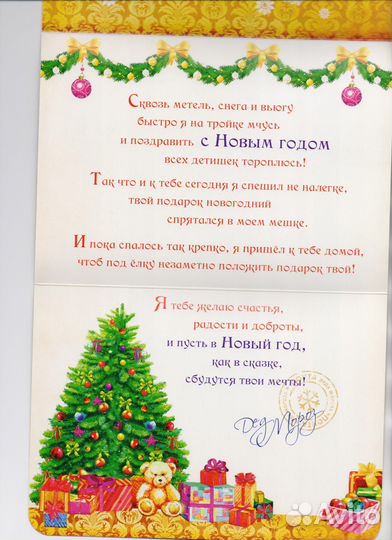 Сквозь метель, снега и вьюгу
быстро я на тройке мчусь
и поздравить с Новым годом
всех детишек тороплюсь!
Так что и к тебе сегодня я спешил не налегке,
твой подарок новогодний
спрятался в моем мешке.
И пока спалось так крепко, я пришёл к тебе домой,
чтоб под ёлку незаметно положить подарок твой!
Я тебе желаю счастья,
радости и доброты,
и пусть в Новый год,
как в сказке,
сбудутся твои мечты!
Дед Мороз
Avito